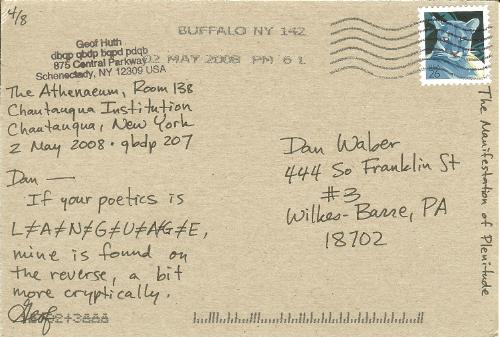 4/8
Geof Huth
dbqp qbdp bqpd pdqb
875 Central Parkway
Schenectady, NY 12309 USA
BUFFALO NY 142
02 MAY 2008 PM 6 L
26
The Athenaeum, Room 138
Chautauqua Institution
Chautauqua, New York
2 May 2008 · qbdp 207
Dan —
If your poetics is
L≠A≠N≠G≠U≠A≠G≠E,
mine is found on
the reverse, a bit
more cryptically.
Geof
Dan Waber
444 So Franklin St
#3
Wilkes-Barre, PA
18702
The Manifestation of Plenitude